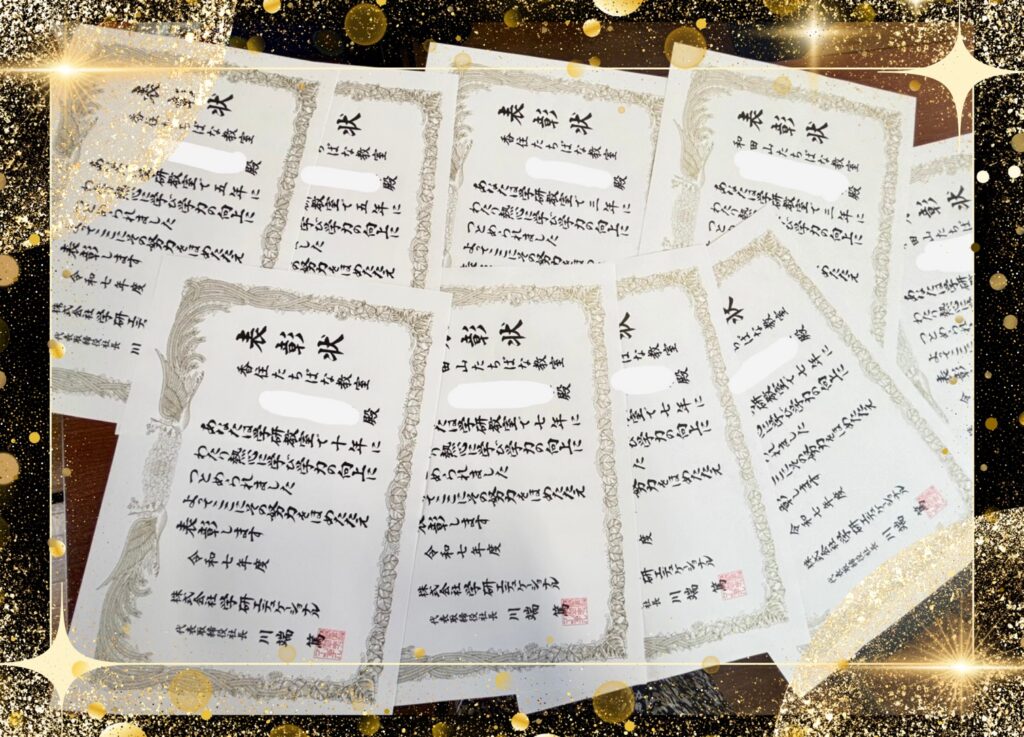 表彰状
香住たちばな教室
殿
あなたは学研教室で五年に
わたり熱心に学び学力の向上に
つとめられました
よってここにその努力をほめたたえ
表彰します
令和七年度
株式会社 学研エデ
代表取締役社長 川
状
っばな教室
殿
教室で五年に
学び学力の向上に
した
の努力をほめたたえ
表彰状
香住たちばな教室
殿
あなたは学研教室で三年に
わたり熱心に学び学力の向上に
つとめられました
よってここにその努力をほめたたえ
表彰状
和田山たちばな教室
殿
あなたは学研教室で三年に
わたり熱心に学び学力の向上に
つとめられました
めたたえ
彰状
田山たちばな教室
あなたは学研
わたり熱心に
つとめられま
よってここに
表彰
令
表彰状
香住たちばな教室
殿
あなたは学研教室で十年に
わたり熱心に学び学力の向上に
つとめられました
よってここにその努力をほめたたえ
表彰します
令和七年度
株式会社 学研エデュケーショナル
代表取締役社長 川端 篤
彰状
田山たちばな教室
殿
たは学研教室で七年に
わたり熱心に学び学力の向上に
とめられました
てここにその努力をほめたたえ
彰します
令和七年度
株式会社 学研エデュケーショナル
代表取締役社長 川端 篤
状
ばな教室
殿
室で七年に
び学力の向上に
た
努力をほめたたえ
度
研エデュケーショナル
社長 川端 篤
状
ばな教室
殿
研教室で七年に
に学び学力の向上に
られました
ここにその努力をほめたたえ
彰します
令和七年度
株式会社 学研エデュケーショナル
代表取締役社長 川端 篤